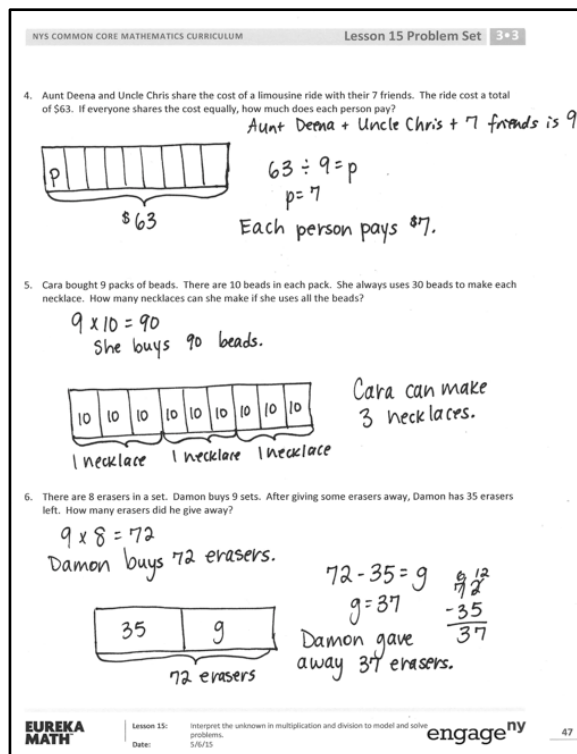 NYS COMMON CORE MATHEMATICS CURRICULUM
Lesson 15 Problem Set 3•3
4. Aunt Deena and Uncle Chris share the cost of a limousine ride with their 7 friends. The ride cost a total
of $63. If everyone shares the cost equally, how much does each person pay?
Aunt Deena + Uncle Chris + 7 friends is 9
p
$63
63 ÷ 9 = p
p = 7
Each person pays $7.
5. Cara bought 9 packs of beads. There are 10 beads in each pack. She always uses 30 beads to make each
necklace. How many necklaces can she make if she uses all the beads?
9 x 10 = 90
She buys 90 beads.
10 10 10 10 10 10 10 10 10
1 necklace 1 necklace 1 necklace
Cara can make
3 necklaces.
6. There are 8 erasers in a set. Damon buys 9 sets. After giving some erasers away, Damon has 35 erasers
left. How many erasers did he give away?
9 x 8 = 72
Damon buys 72 erasers.
35 g
72 erasers
72 - 35 = g
g = 37
6 12
72
-35
37
Damon gave
away 37 erasers.
EUREKA
MATH™
Lesson 15: Interpret the unknown in multiplication and division to model and solve
problems.
Date: 5/6/15
engage ny
47